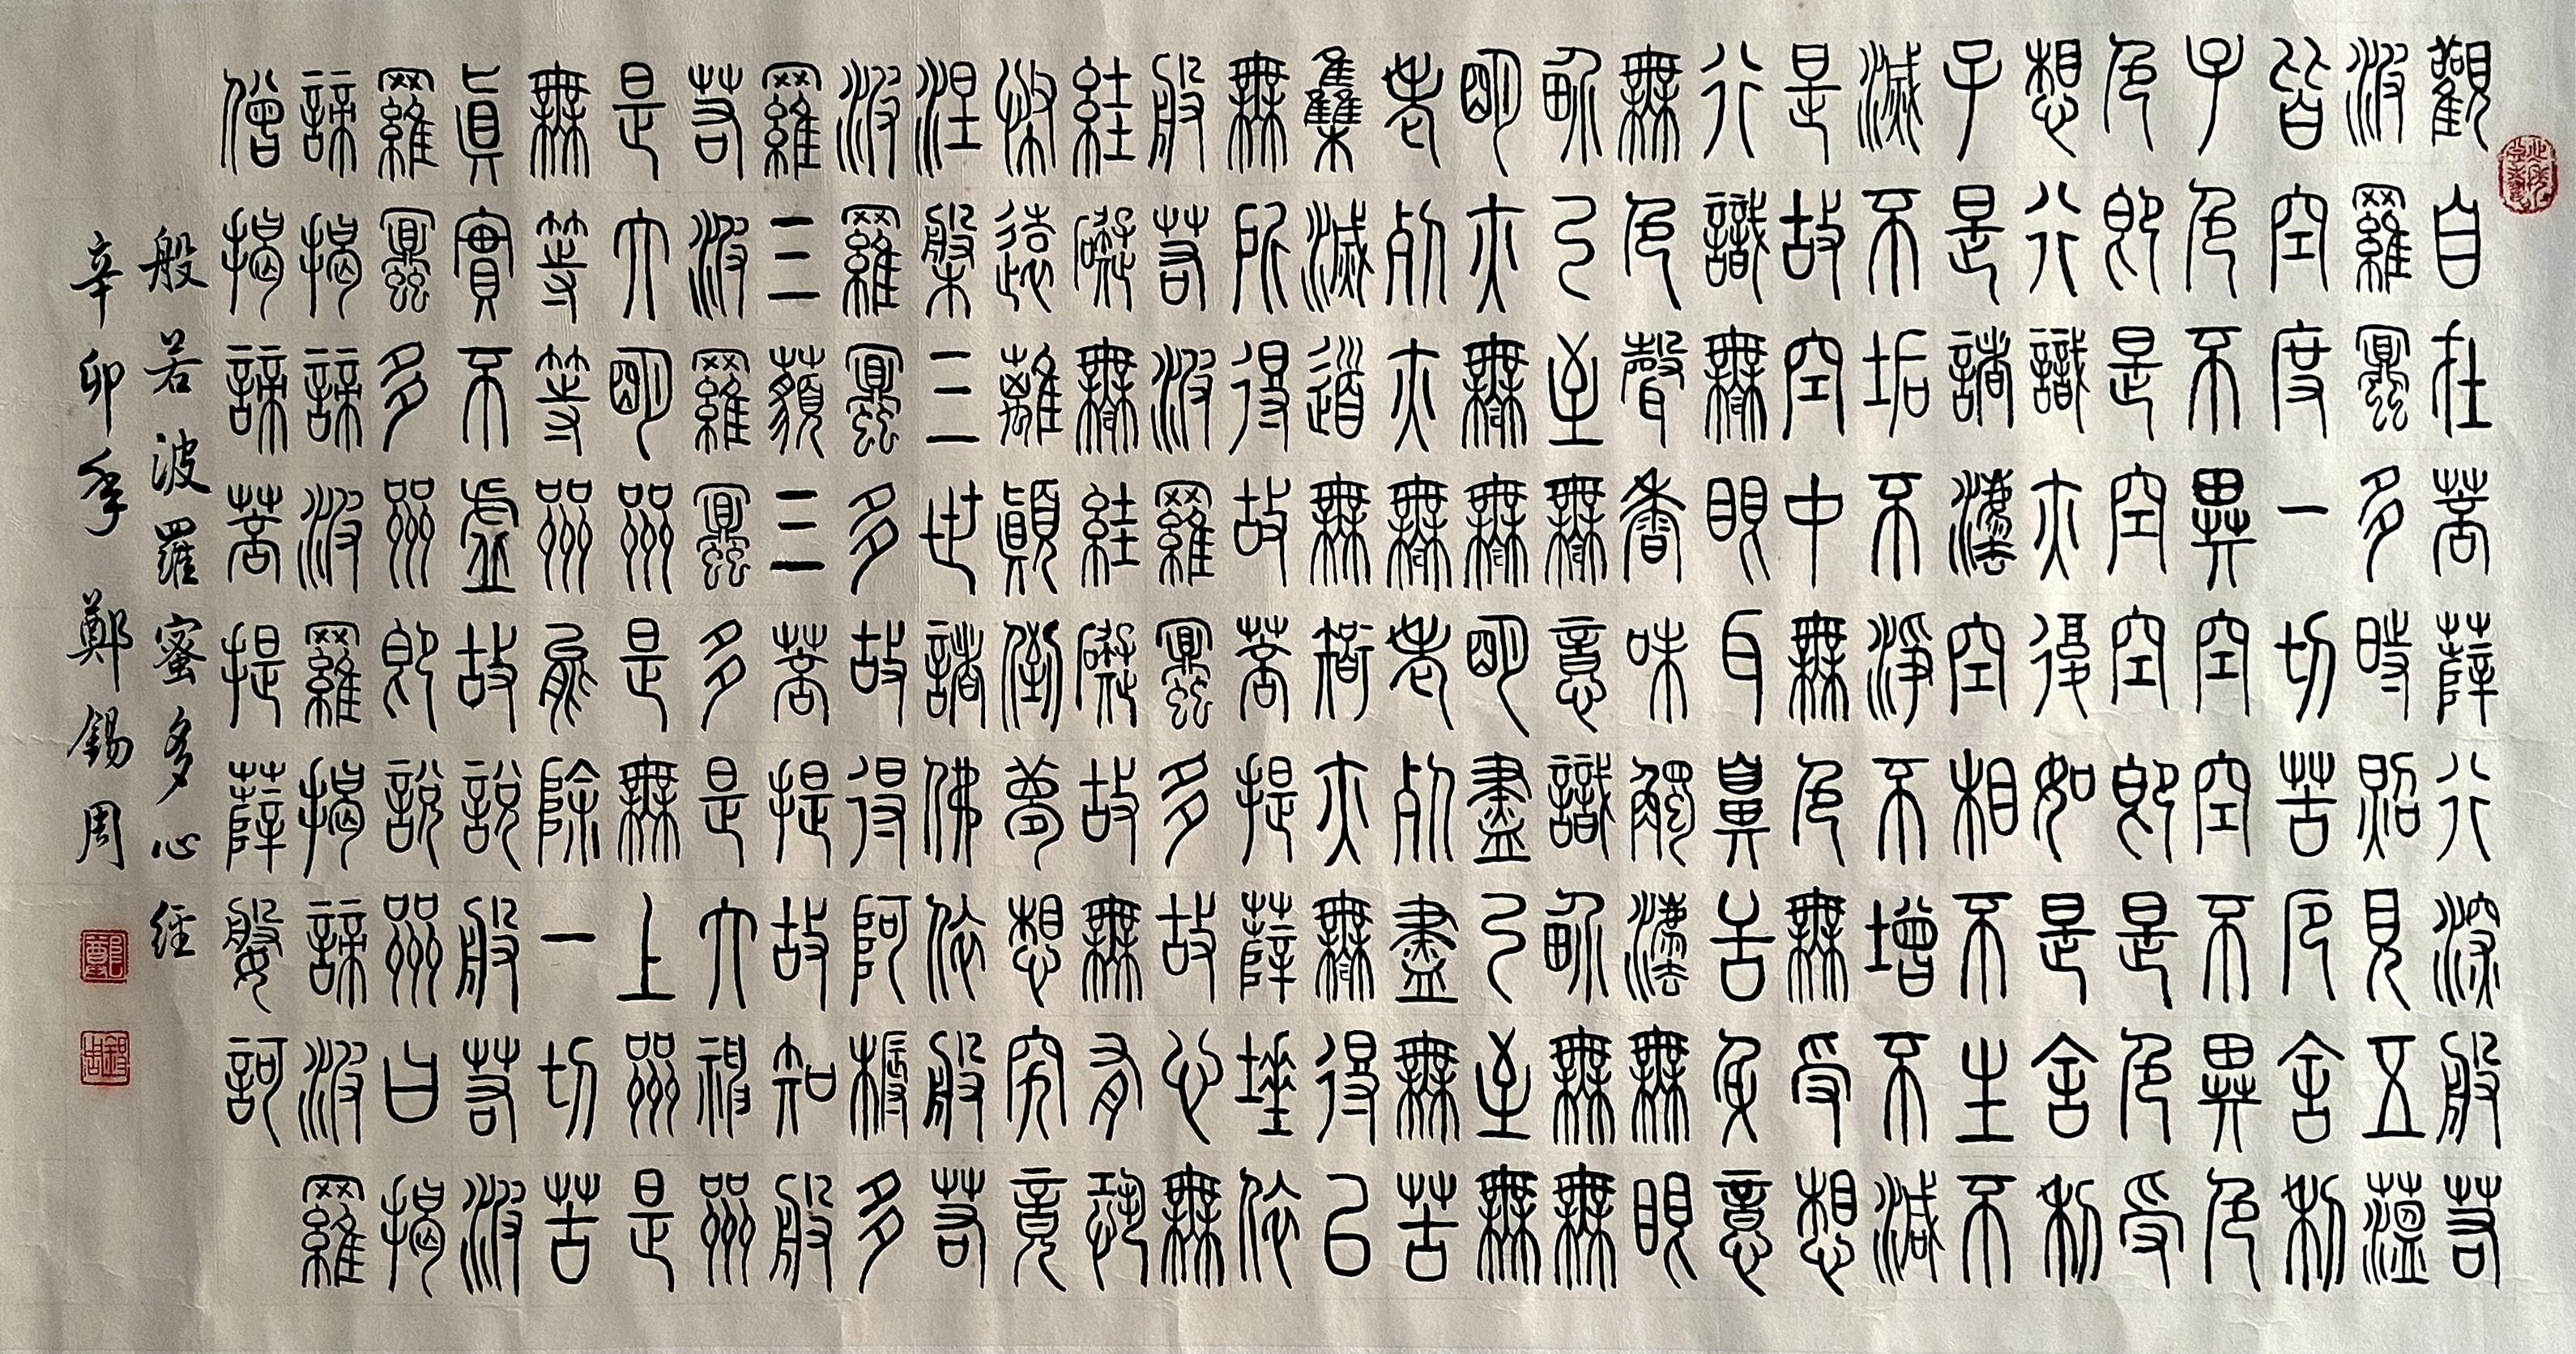 觀自在菩薩行深般若
波羅蜜多時照見五蘊
皆空度一切苦厄舍利
子色不異空空不異色
色即是空空即是色受
想行識亦復如是舍利
子是諸法空相不生不
滅不垢不淨不增不減
是故空中無色無受想
行識無眼耳鼻舌身意
無色聲香味觸法無眼
界乃至無意識界無無
明亦無無明盡乃至無
老死亦無老死盡無苦
集滅道無智亦無得以
無所得故菩提薩埵依
般若波羅蜜多故心無
罣礙無罣礙故無有恐
怖遠離顛倒夢想究竟
涅槃三世諸佛依般若
波羅蜜多故得阿耨多
羅三藐三菩提故知般
若波羅蜜多是大神咒
是大明咒是無上咒是
無等等咒能除一切苦
眞實不虛故說般若波
羅蜜多咒即說咒曰揭
諦揭諦波羅揭諦波羅
僧揭諦菩提薩婆訶
般若波羅蜜多心經
辛卯年 鄭錫周